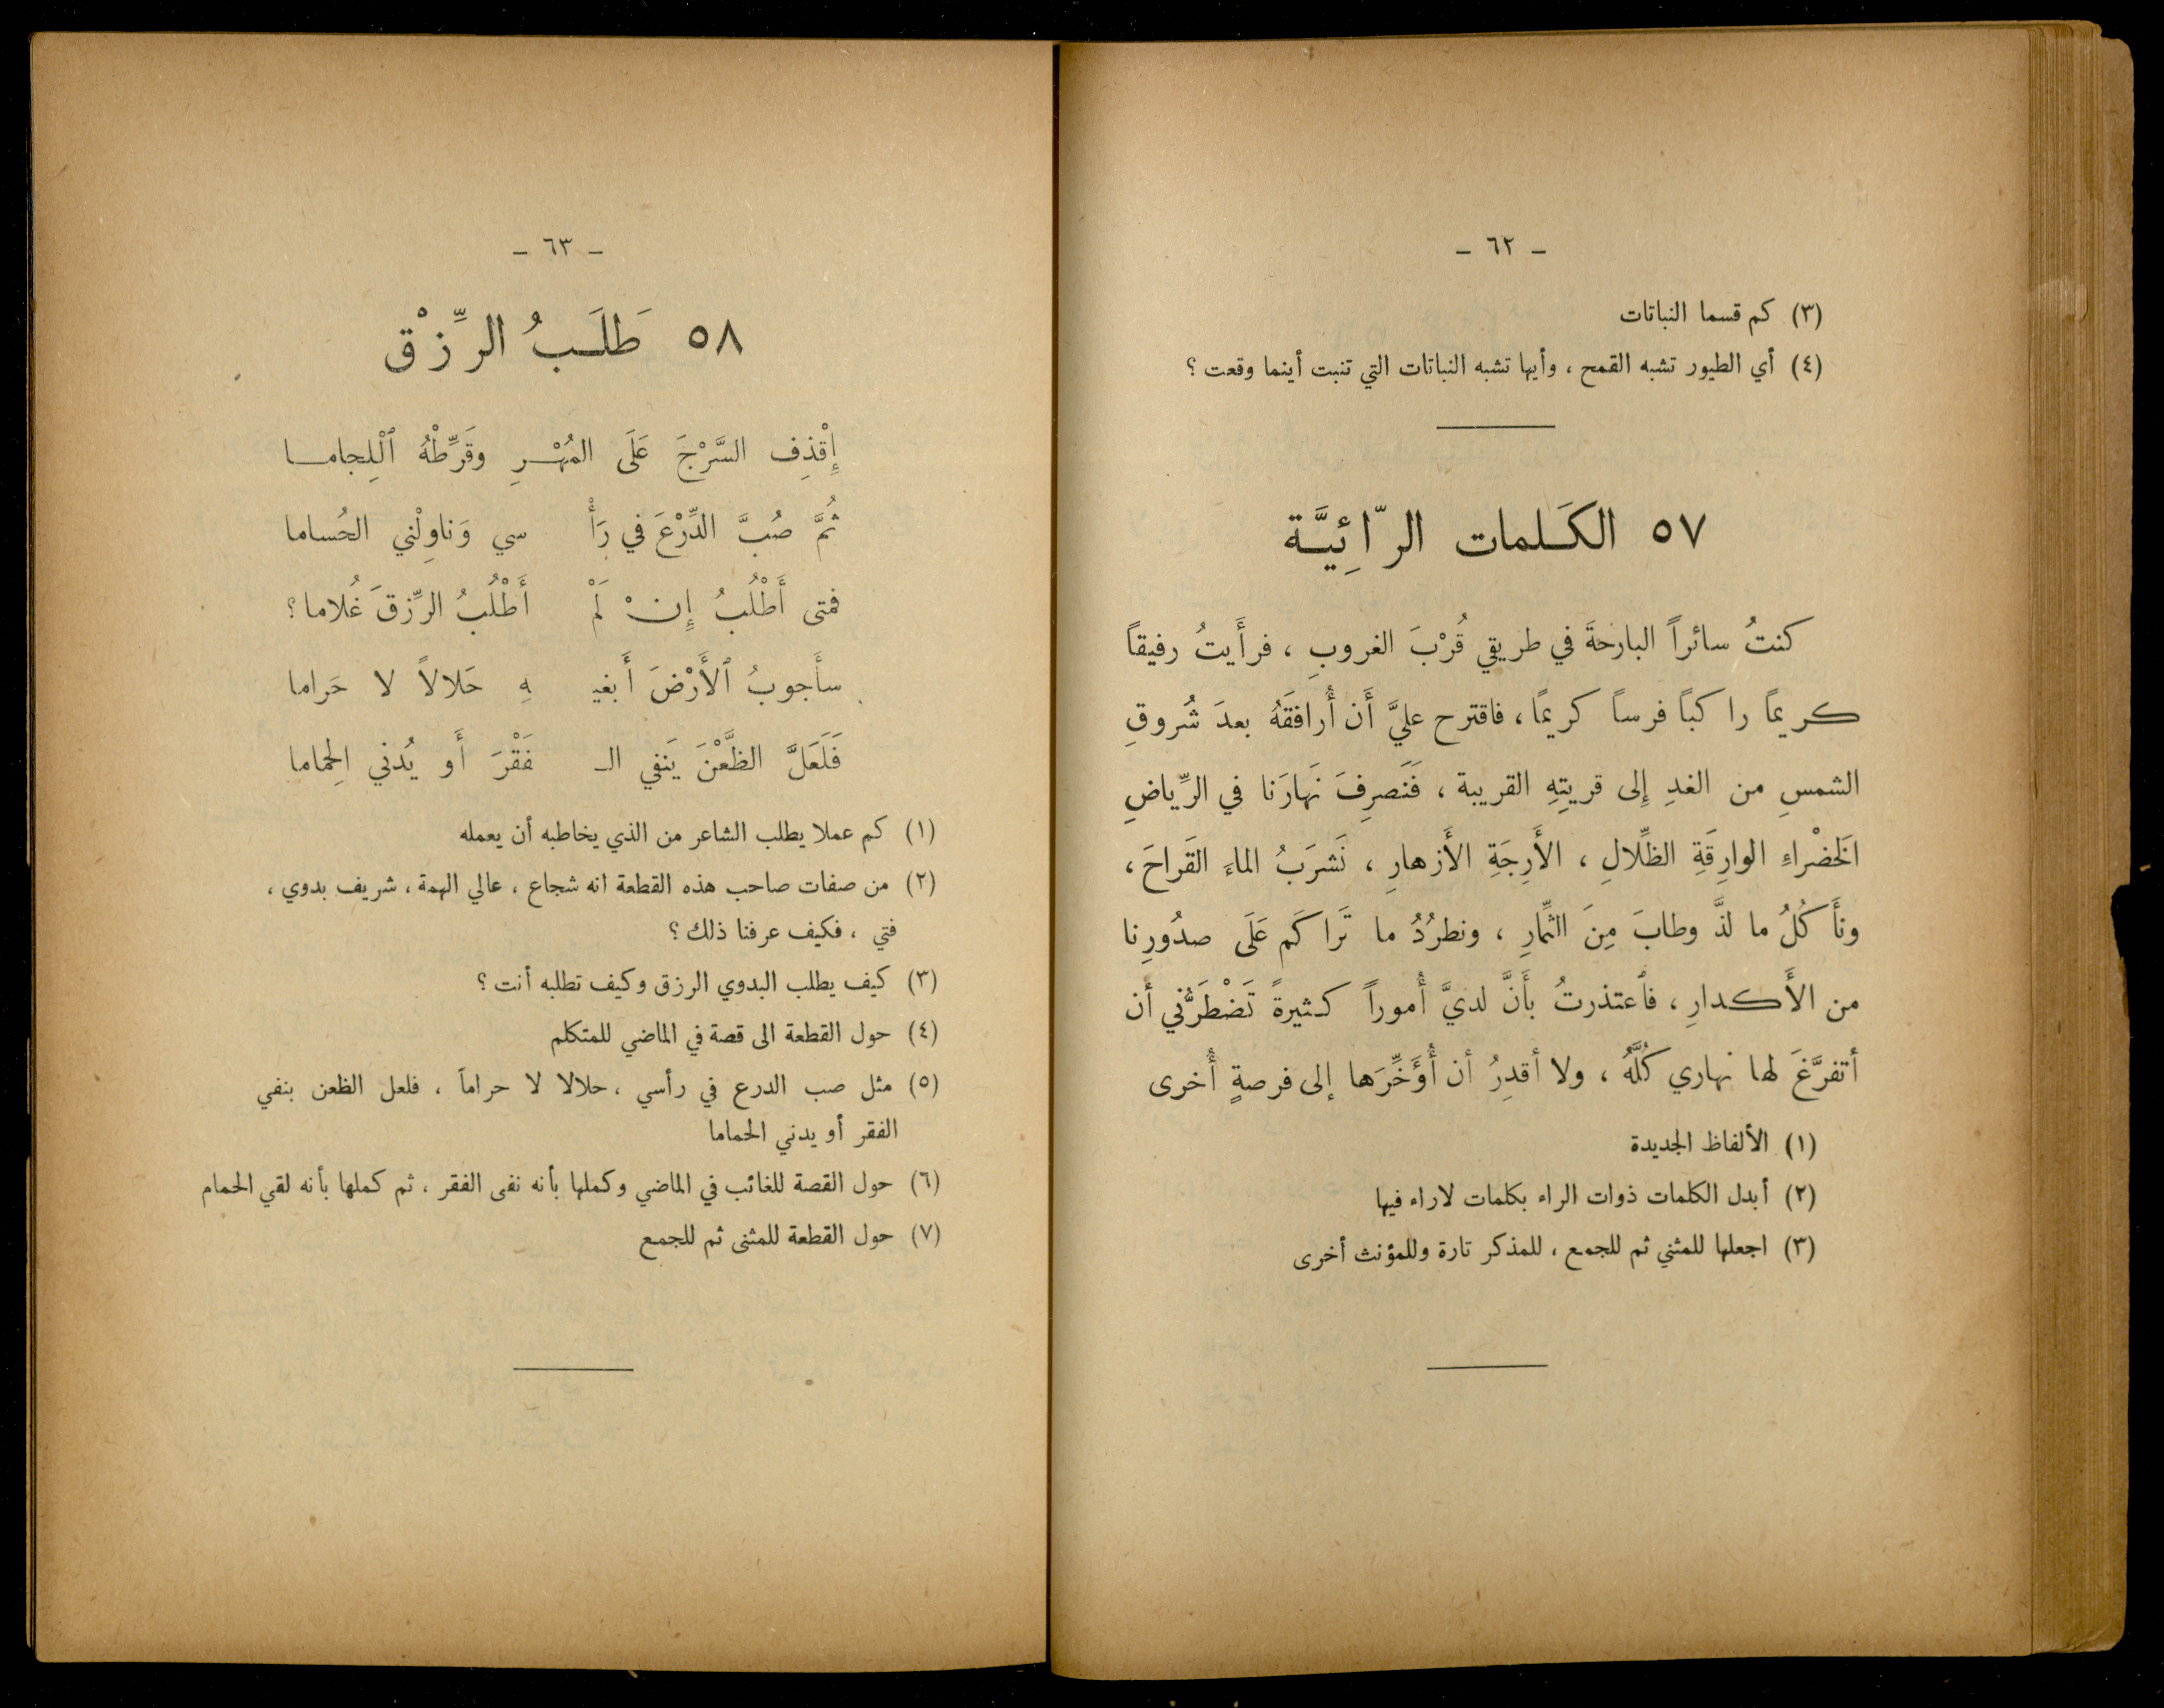 – ٦٢ –
(٣) كم قسما النباتات
(٤) أي الطيور تشبه القمح ، وأيها تشبه النباتات التي تنبت أينما وقعت ؟
٥٧ الكَلمات الرّائِيَّة
كنتُ سائراً البارحةَ في طريقي قُرْبَ الغروبِ ، فرأَيتُ رفيقاً
كريمًا راكبًا فرساً كريمًا ، فاقترح عليَّ أَن أُرافقَهُ بعدَ شُروقِ
الشمسِ من الغدِ إِلى قريتِهِ القريبة ، فَنَصرِفَ نَهارَنا في الرِّياضِ
الخَضْراءِ الوارِقَةِ الظِّلالِ ، الأَرِجَةِ الأَزهارِ ، نَشرَبُ الماءَ القَراحَ ،
ونأَكُلُ ما لذَّ وطابَ مِنَ الثِّمارِ ، ونطرُدُ ما تَراكَم عَلَى صدُورِنا
من الأَكدارِ ، فٱعتذرتُ بأَنَّ لديَّ أُموراً كثيرةً تَضْطَرُّني أَن
أتفرَّغَ لها نهاري كُلَّهُ ، ولا أقدِرُ أن أُؤَخِّرَها إلى فرصةٍ أُخرى
(١) الألفاظ الجديدة
(٢) أبدل الكلمات ذوات الراء بكلمات لاراء فيها
(٣) اجعلها للمثني ثم للجمع ، للمذكر تارة وللمؤنث أخرى
– ٦٣ –
٥٨ طَلَبُ الرِّزْق
إِقْذِفِ السَّرْجَ عَلَى المُهْرِ وقَرِّطْهُ ٱلْلِجاما
ثُمَّ صُبَّ الدِّرْعَ في رَأْ سي وَناوِلْني الحُساما
فمتى أَطْلُبُ إِنْ لَمْ أَطْلُبُ الرِّزقَ غُلاما؟
سأَجوبُ ٱلأَرْضَ أَبغيـ ـهِ حَلالاً لا حَراما
فَلَعَلَّ الظَّعْنَ يَنفي الـ فَقْرَ أَو يُدني الحِماما
(١) كم عملا يطلب الشاعر من الذي يخاطبه أن يعمله
(٢) من صفات صاحب هذه القطعة انه شجاع ، عالي الهمة ، شريف بدوي ،
فتي ، فكيف عرفنا ذلك ؟
(٣) كيف يطلب البدوي الرزق وكيف تطلبه أنت ؟
(٤) حول القطعة الى قصة في الماضي للمتكلم
(٥) مثل صب الدرع في رأسي ، حلالا لا حراماً ، فلعل الظعن بنفي
الفقر أو يدني الحماما
(٦) حول القصة للغائب في الماضي وكملها بأنه نفى الفقر ، ثم كملها بأنه لقي الحمام
(٧) حول القطعة للمثنى ثم للجمع